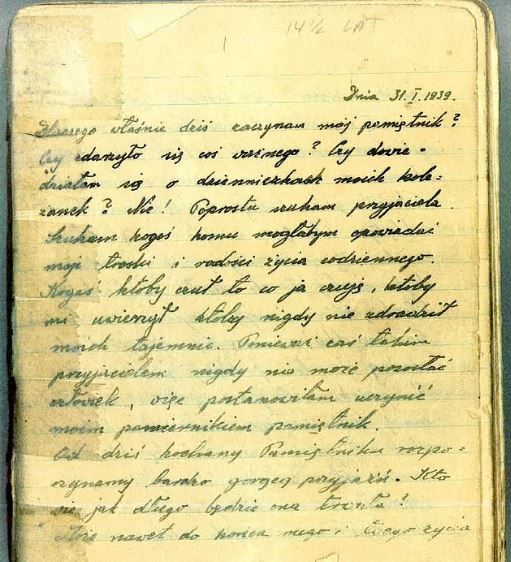 14 ½ LAT
Dnia 31.I.1939.
Dlaczego właśnie dziś zaczynam mój pamiętnik?
Czy zdarzyło się coś ważnego? Czy dowie-
działam się o dzienniczkach moich kole-
żanek? Nie! Poprostu szukam przyjaciela.
Szukam kogoś komu mogłabym opowiadać
moje troski i radości życia codziennego.
Kogoś ktoby czuł to co ja czuję, ktoby
mi uwierzył ktoby nigdy nie zdradził
moich tajemnic. Ponieważ takim
przyjacielem nigdy nie może pozostać
człowiek, więc postanowiłam uczynić
moim powiernikiem pamiętnik.
Od dziś kochany Pamiętniku rozpo-
czynamy bardzo gorącą przyjaźń. Kto
wie jak długo będzie ona trwała?
Może nawet do końca mego i Twego życia